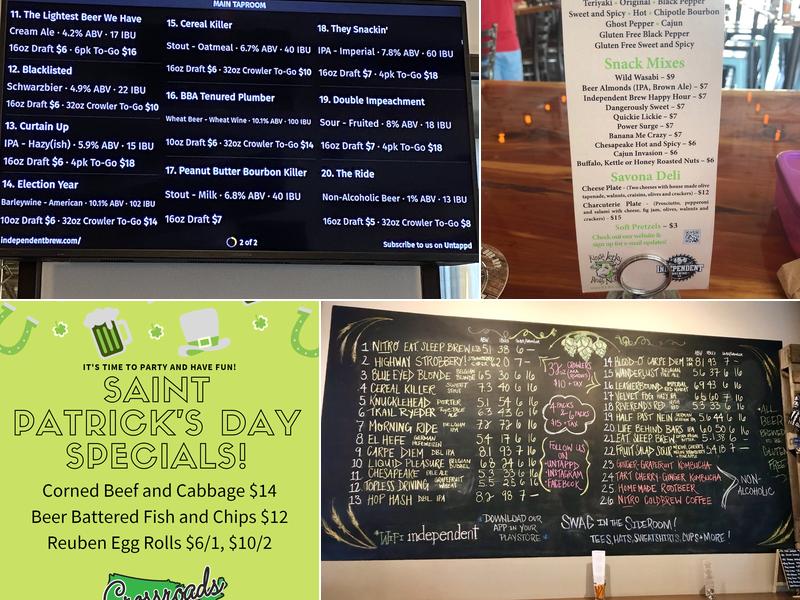 MAIN TAPROOM
11. The Lightest Beer We Have
Cream Ale · 4.2% ABV · 17 IBU
16oz Draft $6 · 6pk To-Go $16
12. Blacklisted
Schwarzbier · 4.9% ABV · 22 IBU
16oz Draft $6 · 32oz Crowler To-Go $10
13. Curtain Up
IPA - Hazy(ish) · 5.9% ABV · 15 IBU
16oz Draft $6 · 4pk To-Go $18
14. Election Year
Barleywine - American · 10.1% ABV · 102 IBU
10oz Draft $6 · 32oz Crowler To-Go $14
15. Cereal Killer
Stout - Oatmeal · 6.7% ABV · 40 IBU
16oz Draft $6 · 32oz Crowler To-Go $10
16. BBA Tenured Plumber
Wheat Beer - Wheat Wine · 10.1% ABV · 100 IBU
10oz Draft $6 · 32oz Crowler To-Go $14
17. Peanut Butter Bourbon Killer
Stout - Milk · 6.8% ABV · 40 IBU
16oz Draft $7
18. They Snackin'
IPA - Imperial · 7.8% ABV · 60 IBU
16oz Draft $7 · 4pk To-Go $18
19. Double Impeachment
Sour - Fruited · 8% ABV · 18 IBU
16oz Draft $7 · 4pk To-Go $18
20. The Ride
Non-Alcoholic Beer · 1% ABV · 13 IBU
16oz Draft $5 · 32oz Crowler To-Go $8
independentbrew.com/
2 of 2
Subscribe to us on Untappd
Teriyaki · Original · Black Pepper
Sweet and Spicy · Hot · Chipotle Bourbon
Ghost Pepper · Cajun
Gluten Free Black Pepper
Gluten Free Sweet and Spicy
Snack Mixes
Wild Wasabi – $9
Beer Almonds (IPA, Brown Ale) – $7
Independent Brew Happy Hour – $7
Dangerously Sweet – $7
Quickie Lickie – $7
Power Surge – $7
Banana Me Crazy – $7
Chesapeake Hot and Spicy – $6
Cajun Invasion – $6
Buffalo, Kettle or Honey Roasted Nuts – $6
Savona Deli
Cheese Plate - (Two cheeses with house made olive
tapenade, walnuts, craisins, olives and crackers) – $12
Charcuterie Plate - (Prosciutto, pepperoni
and salami with cheese, fig jam, olives, walnuts and
crackers) – $15
Soft Pretzels – $3
Check out our website &
sign up for e-mail updates!
INDEPENDENT
IT'S TIME TO PARTY AND HAVE FUN!
SAINT
PATRICK'S DAY
SPECIALS!
Corned Beef and Cabbage $14
Beer Battered Fish and Chips $12
Reuben Egg Rolls $6/1, $10/2
Crossroads
1 NITRO EAT SLEEP BREW 5.1 38 6
2 HIGHWAY STROBBERY!
3 BLUE EYED BLONDE
4 CEREAL KILLER SWEET STOUT 7.3 40 6 16
5 KNUCKLEHEAD PORTER 5.1 54 6 16
6 TRAIL RYEDER
7 MORNING RIDE BELGIAN IPA
8 EL HEFE GERMAN HEFEWEIZEN 5.4 17 6 16
9 CARPE DIEM DBL IPA 8.1 93 7 16
10 LIQUID PLEASURE BELGIAN DUBBEL
11 CHESAPEAKE PALE ALE
12 TOPLESS DRIVING GRAPEFRUIT WHEAT
13 HOP HASH DBL IPA 8.2 98 7
32oz CROWLERS
$10 + TAX
4 PACKS
6 PACKS
$15 + TAX
FOLLOW US ON
-UNTAPPD
-INSTAGRAM
-FACEBOOK
14 BLOOD-O' CARPE DIEM 8.1 93 7
15 WANDERLUST
16 LEATHERBOUND
17 VELVET FOG HAZY IPA
18 REVEREND'S RED
19 HALF PAST NEIN
20 LIFE BEHIND BARS IPA 6.0 50 6 16
21 EAT SLEEP BREW 5.1 38 6
22 FRUIT SALAD SOUR
23 GINGER-GRAPEFRUIT KOMBUCHA
24 TART CHERRY-GINGER KOMBUCHA
25 HOMEMADE ROOTBEER
26 NITRO COLDBREW COFFEE
NON-ALCOHOLIC
WIFI independent
*DOWNLOAD OUR
APP IN YOUR
PLAYSTORE*
SWAG IN THE SIDEROOM!
TEES, HATS, SWEATSHIRTS, CUPS + MORE!